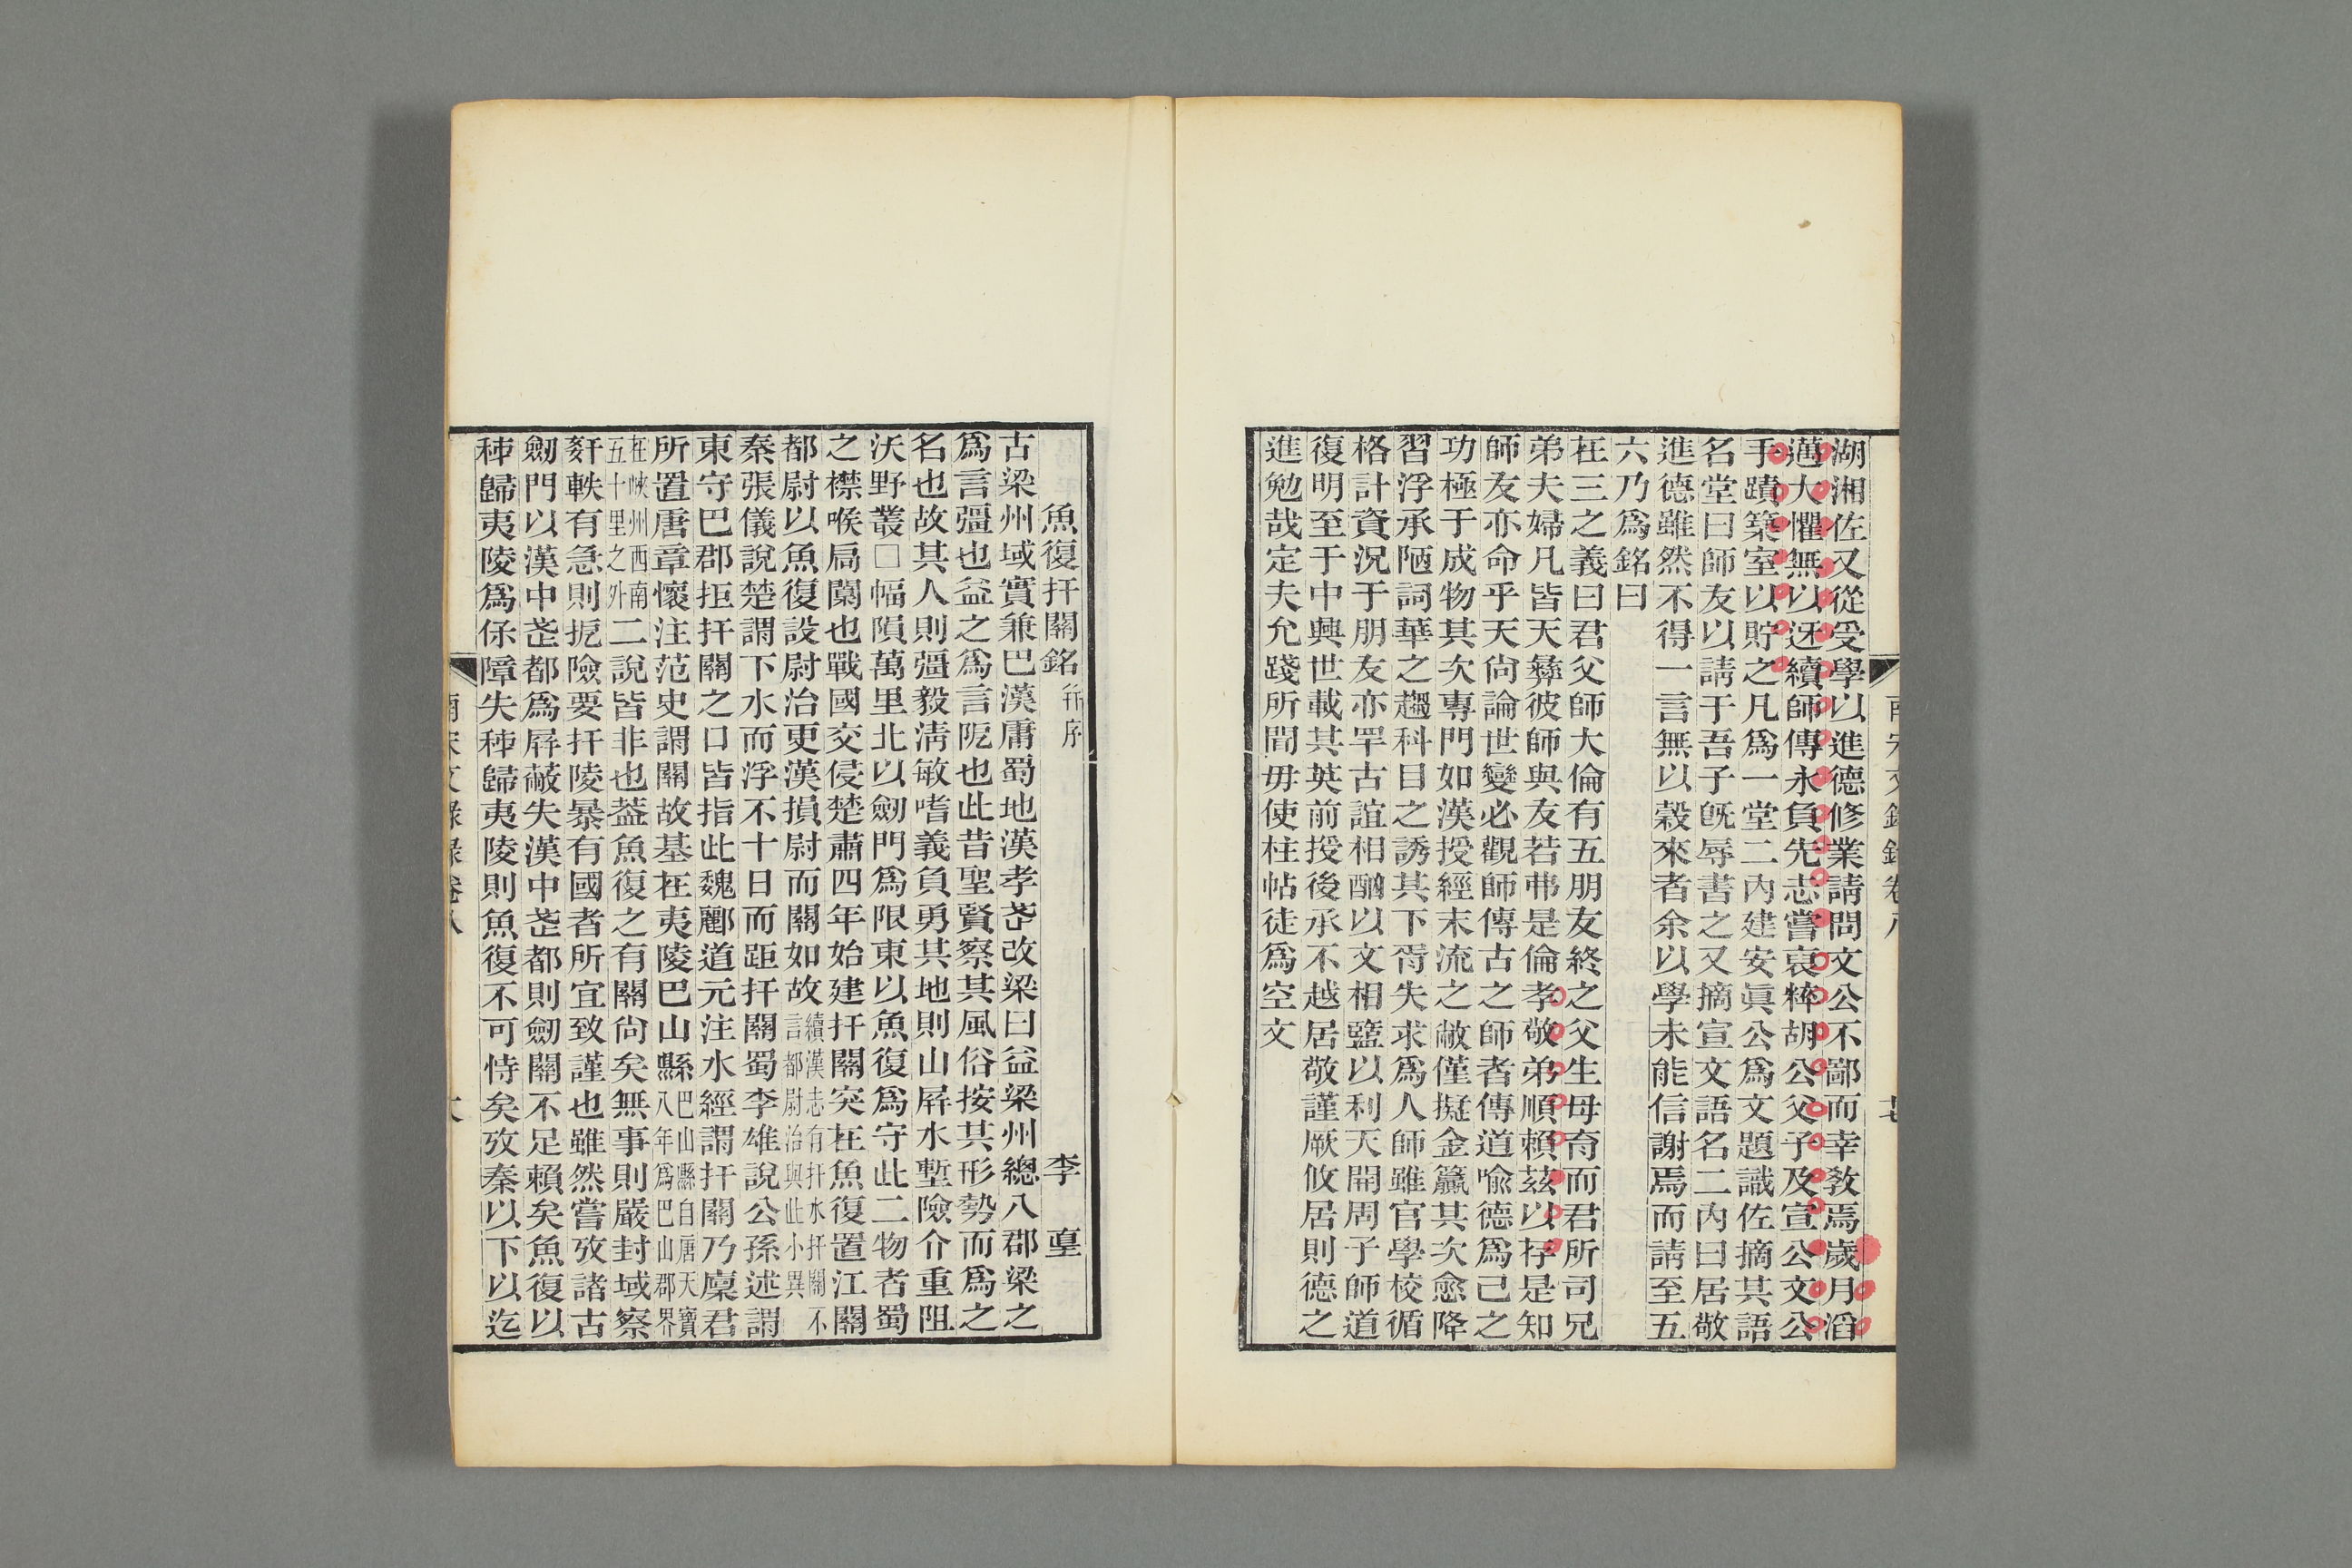 湖湘佐又從受學以進德修業請問文公不鄙而幸敎焉歲月滔
邁大懼無以迓續師傳永負先志嘗裒粹胡公父子及宣公文公
手蹟築室以貯之凡爲一堂二內建安眞公爲文題識佐摘其語
名堂曰師友以請于吾子旣辱書之又摘宣文語名二內曰居敬
進德雖然不得一言無以榖來者余以學未能信謝焉而請至五
六乃爲銘曰
在三之義曰君父師大倫有五朋友終之父生母育而君所司兄
弟夫婦凡皆天彝彼師與友若弗是倫孝敬弟順賴茲以存是知
師友亦命乎天尙論世變必觀師傳古之師者傳道喻德爲己之
功極于成物其次專門如漢授經末流之敝僅擬金籯其次愈降
習浮承陋詞華之趨科目之誘其下胥失求爲人師雖官學校循
格計資況于朋友亦罕古誼相酬以文相盬以利天開周子師道
復明至于中興世載其英前授後承不越居敬謹厥攸居則德之
進勉哉定夫允踐所聞毋使柱帖徒爲空文
南宋文錄錄卷八
魚復扞關銘 并序 李㙡
古梁州域實兼巴漢庸蜀地漢孝武改梁曰益梁州總八郡梁之
爲言彊也益之爲言阨也此昔聖賢察其風俗按其形勢而爲之
名也故其人則彊毅淸敏嗜義負勇其地則山屛水塹險介重阻
沃野叢□幅隕萬里北以劒門爲限東以魚復爲守此二物者蜀
之襟喉扃闑也戰國交侵楚肅四年始建扞關突在魚復置江關
都尉以魚復設尉治更漢損尉而關如故續漢志有扞水扞關不言都尉治與此小異
秦張儀說楚謂下水而浮不十日而距扞關蜀李雄說公孫述謂
東守巴郡拒扞關之口皆指此魏酈道元注水經謂扞關乃廩君
所置唐章懷注范史謂關故基在夷陵巴山縣巴山縣自唐天寶八年爲巴山郡界
在峽州西南五十里之外二說皆非也葢魚復之有關尙矣無事則嚴封域察
姧軼有急則扼險要扞陵暴有國者所宜致謹也雖然嘗攷諸古
劒門以漢中武都爲屛蔽失漢中武都則劒關不足賴矣魚復以
秭歸夷陵爲保障失秭歸夷陵則魚復不可恃矣攷秦以下以迄
南宋文錄錄卷八